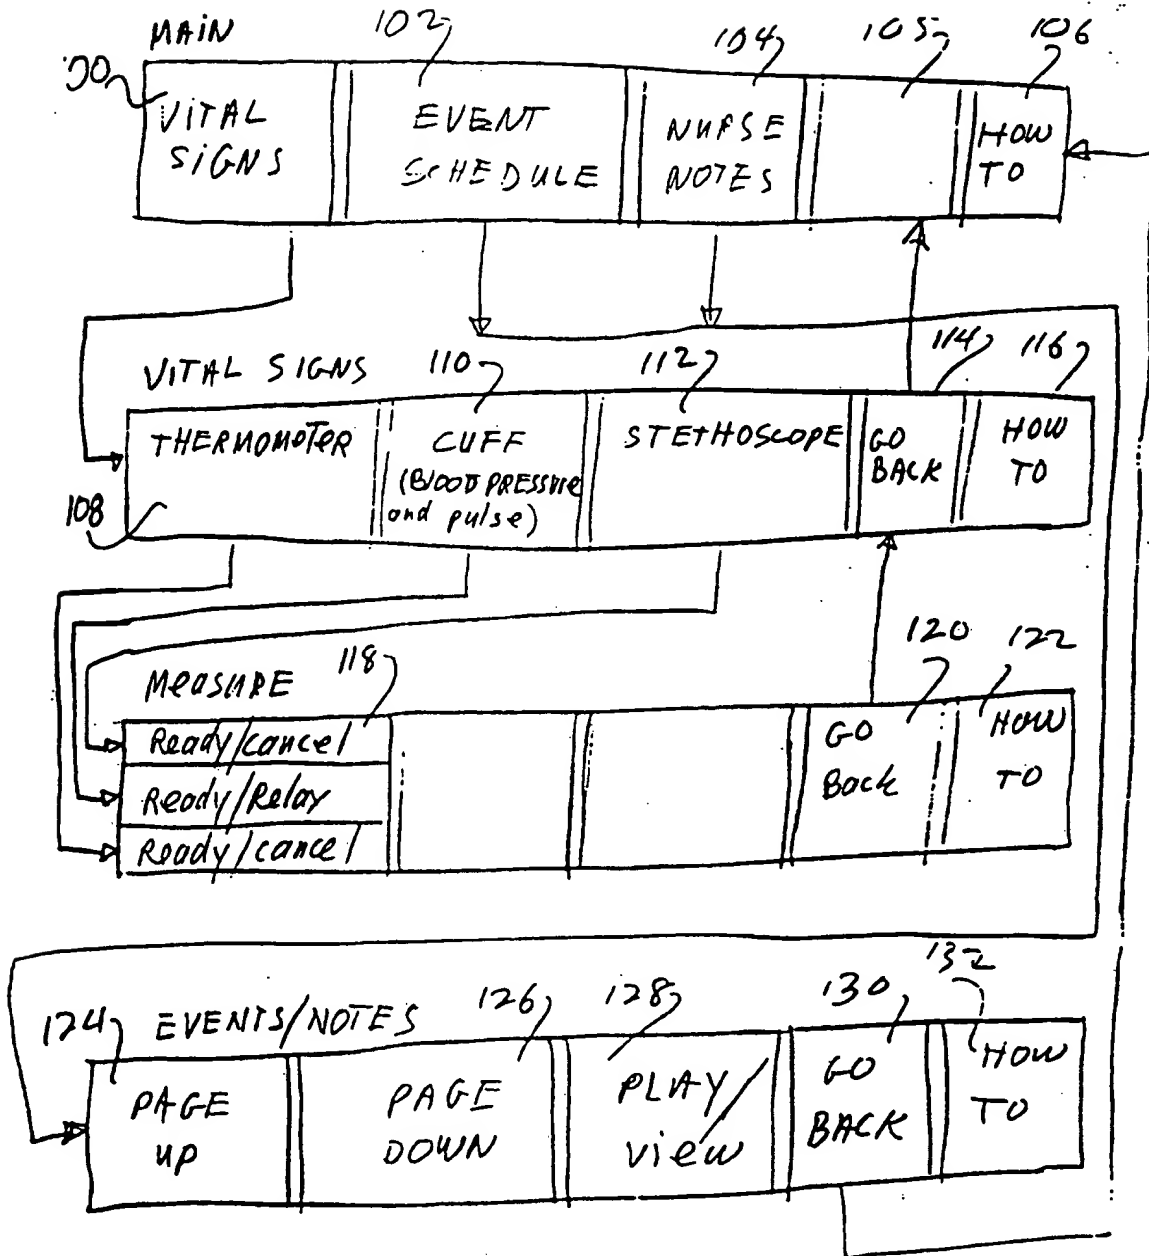 MAIN
102
104
105
106
100
VITAL
SIGNS
EVENT
SCHEDULE
NURSE
NOTES
HOW
TO
VITAL SIGNS
110
112
114
116
THERMOMOTER
CUFF
(BLOOD PRESSURE
and pulse)
STETHOSCOPE
GO
BACK
HOW
TO
108
MEASURE
118
120
122
Ready/cancel
Ready/Relay
Ready/cancel
GO
Back
HOW
TO
124
EVENTS/NOTES
126
128
130
132
PAGE
UP
PAGE
DOWN
PLAY/
view
GO
BACK
HOW
TO